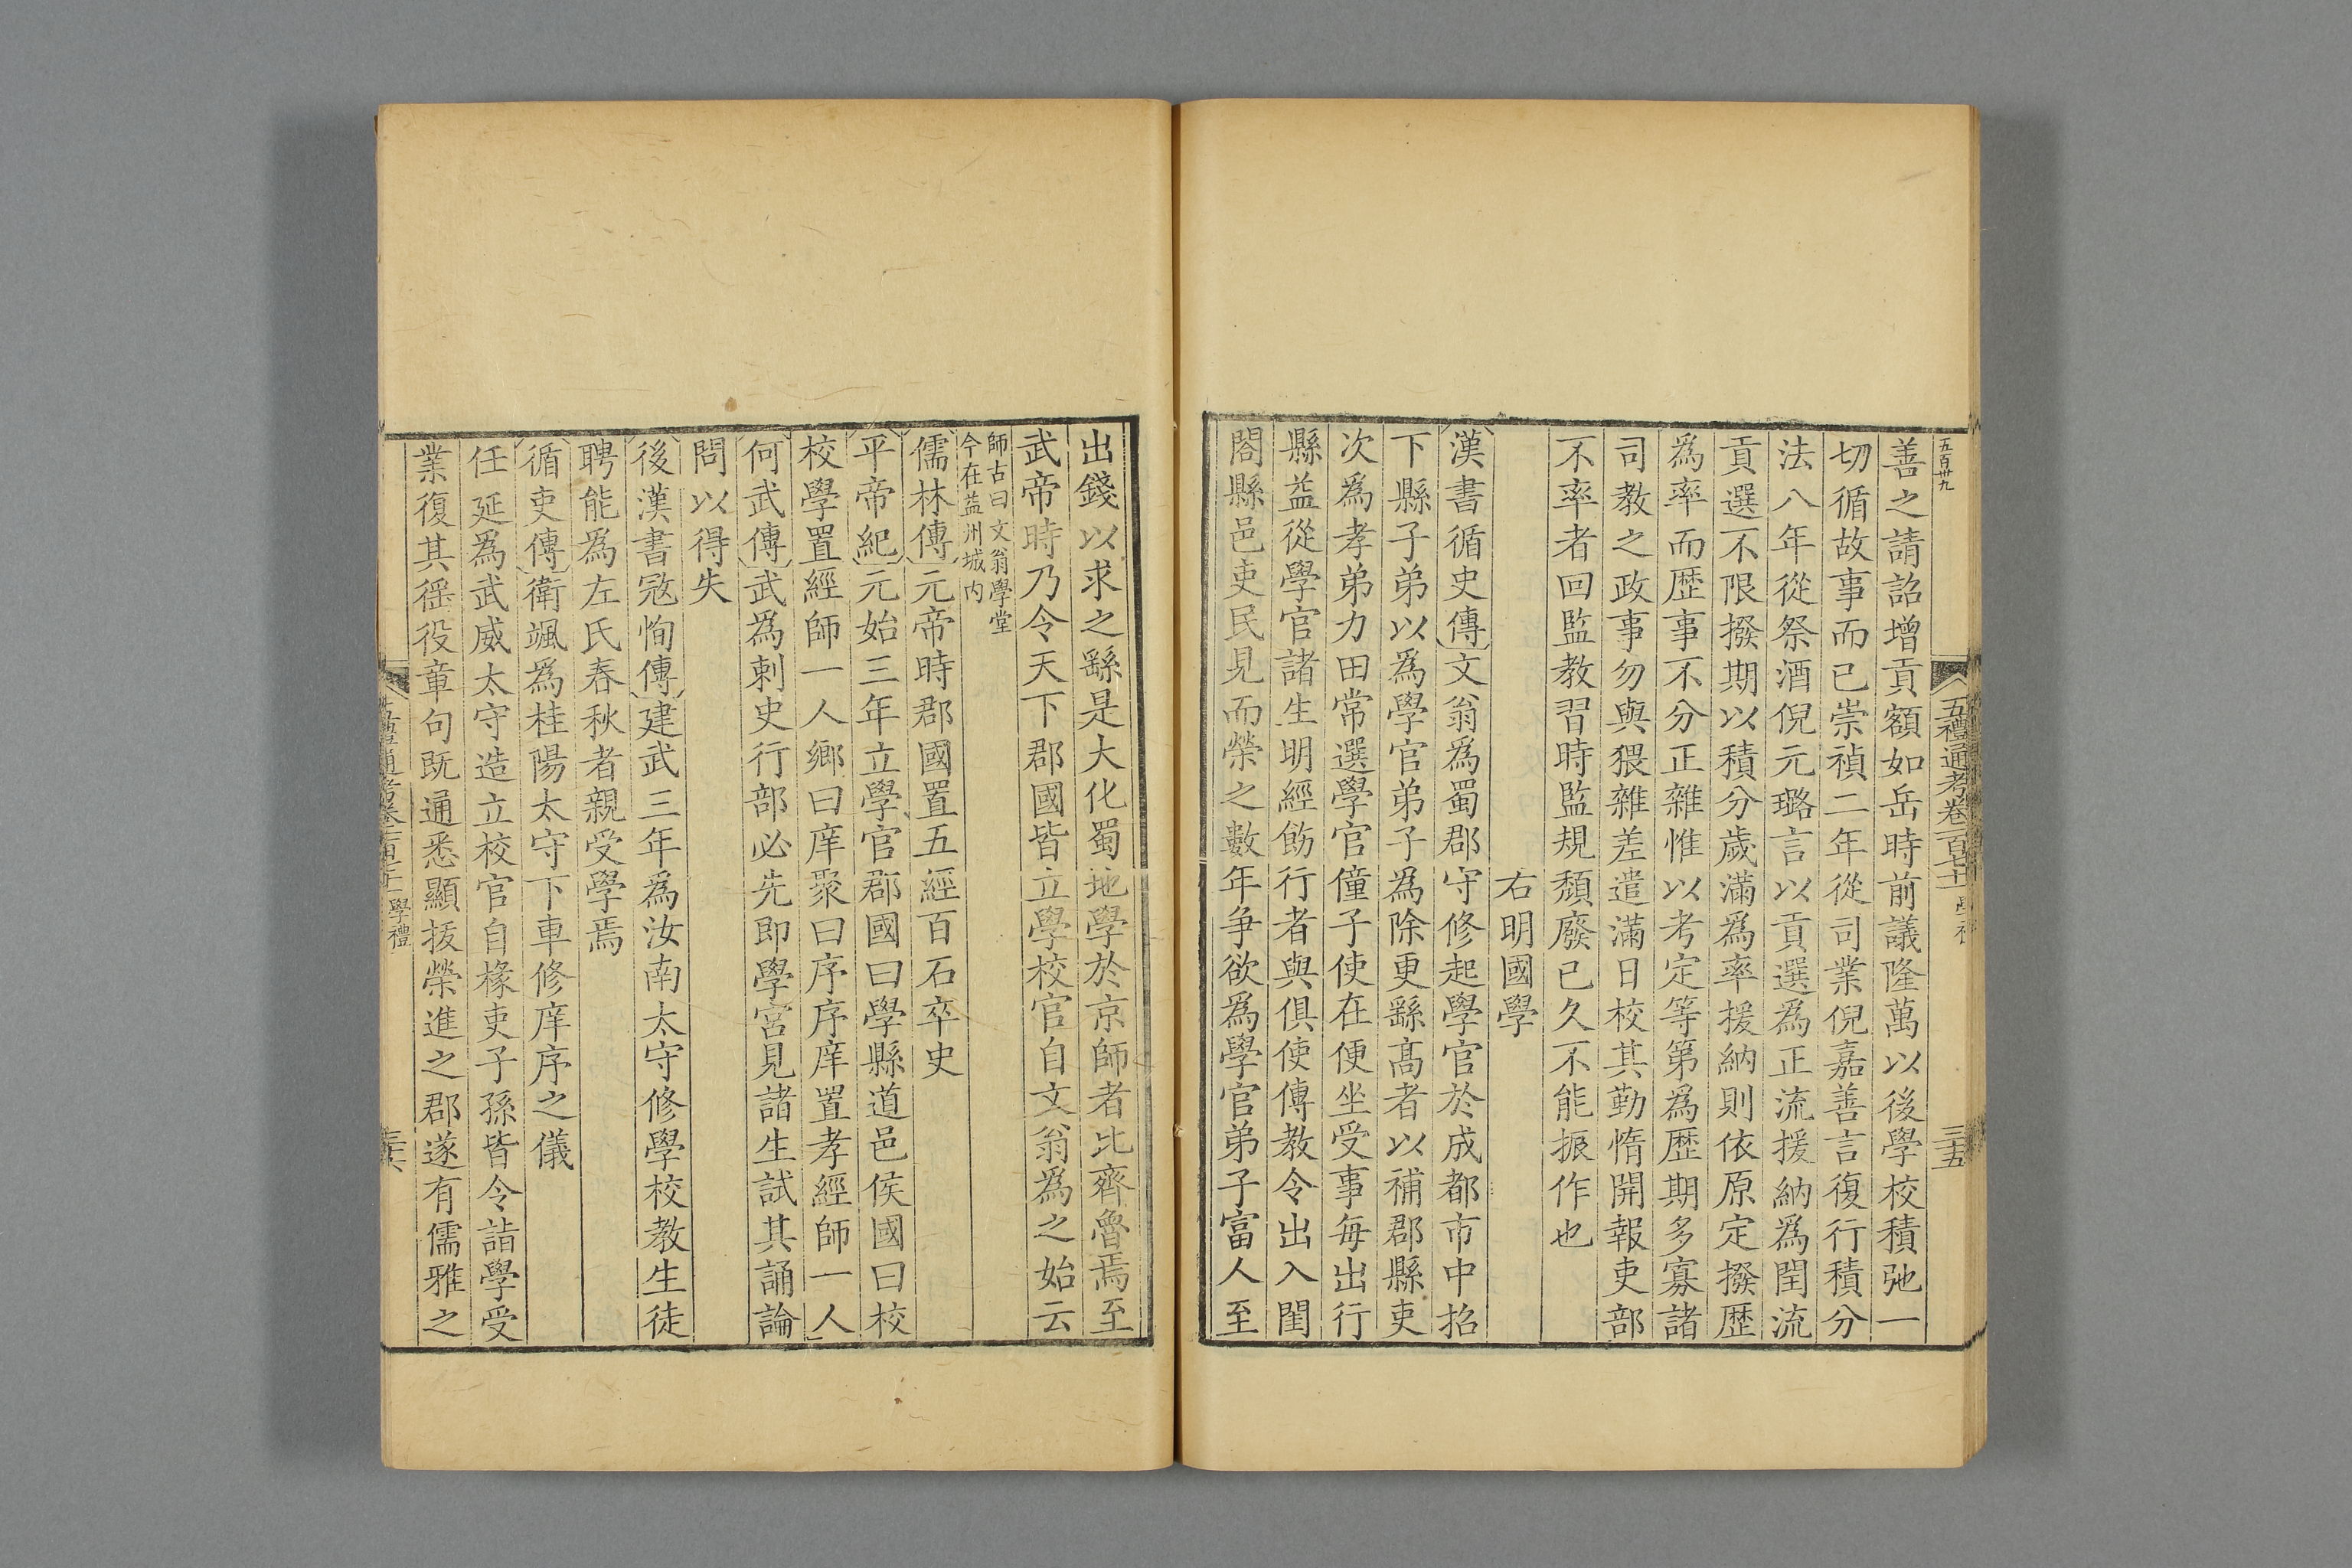 五百卅九
五禮通考卷一百七十一 學禮
三十五
善之請詔增貢額如岳時前議隆萬以後學校積弛一
切循故事而已崇禎二年從司業倪嘉善言復行積分
法八年從祭酒倪元璐言以貢選為正流援納為閏流
貢選不限撥期以積分歲滿為率援納則依原定撥歷
爲率而歷事不分正雜惟以考定等第為歷期多寡諸
司教之政事勿與猥雜差遣滿日校其勤惰開報吏部
不率者回監教習時監規頽廢已久不能振作也
右明國學
漢書循史傳文翁爲蜀郡守修起學官於成都市中招
下縣子弟以爲學官弟子為除更繇髙者以補郡縣吏
次爲孝弟力田常選學官僮子使在便坐受事每出行
縣益從學官諸生明經飭行者與俱使傳教令出入閨
閤縣邑吏民見而榮之數年争欲爲學官弟子富人至
出錢以求之繇是大化蜀地學於京師者比齊魯焉至
武帝時乃令天下郡國皆立學校官自文翁為之始云
師古曰文翁學堂
今在益州城内
儒林傳元帝時郡國置五經百石卒史
平帝紀元始三年立學官郡國曰學縣道邑侯國曰校
校學置經師一人鄉曰庠聚曰序序庠置孝經師一人
何武傳武爲刺史行部必先即學宮見諸生試其誦論
問以得失
後漢書宼恂傳建武三年為汝南太守修學校教生徒
聘能為左氏春秋者親受學焉
循吏傳衛颯爲桂陽太守下車修庠序之儀
任延爲武威太守造立校官自掾吏子孫皆令詣學受
業復其徭役章句既通悉顯拔榮進之郡遂有儒雅之
五禮通考卷一百七十一 學禮
三十六